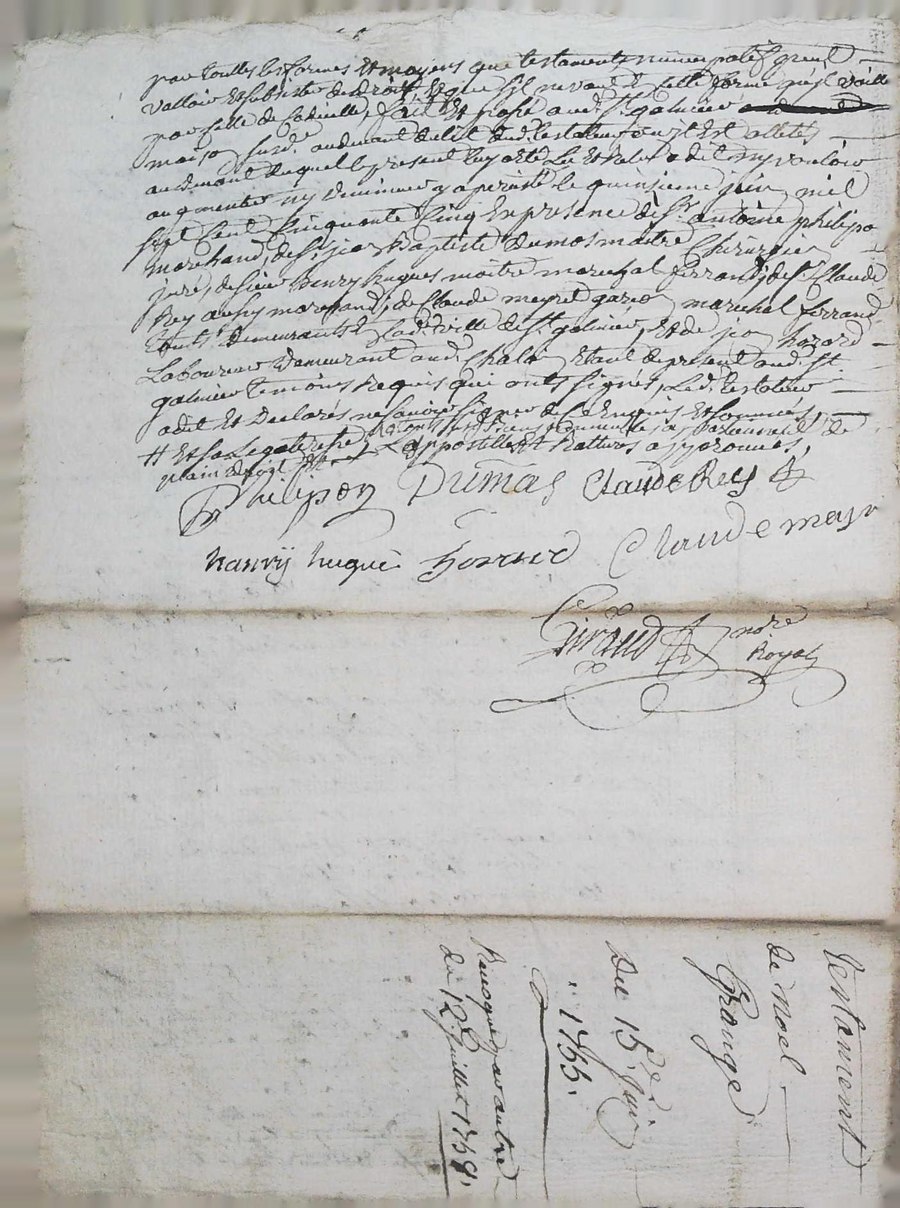 par touttes les formes et moyens que testaments nuncupatif peut
valloir et subsister de droit, et que s'il ne vaut telle forme qu'il vaille
par celle de codicille, fait et passé aud. St. galmier
maison sus d. audevant du lit dud. testateur ou il est allité
au devant duquel le present luy a eté leu et relu a dit n'y vouloir
augmenter ny diminuer y a persisté le quinzieme juin mil
sept cent cinquante cinq en presence de Sr. antoine philipon
marchand, de Sr. jean Baptiste Dumas maitre Chirurgien
juré, de Sieur henry hugues maitre marechal ferrand, de Sr. Claude
Rey aussy marchand, de Claude meyret garçon marechal ferrand
touts demeurants lad. ville de St. galmier, et de jean horard
Laboureur demeurant aud. Chala etant de present aud. St.
galmier temoins requis qui onts signés, Led. testateur
a dit et declarés ne scavoir signer de ce enquis et sommés
# et sa legataire
plain Lappostille et Ratures approuvés,
Philipon Dumas Claude Rey
hanrÿ huguè horard Claude mayr
Giraud nore
Royal
Testament
de noel
Grange
Du 15e. Juin
1755.
du 12e Juillet 1758.